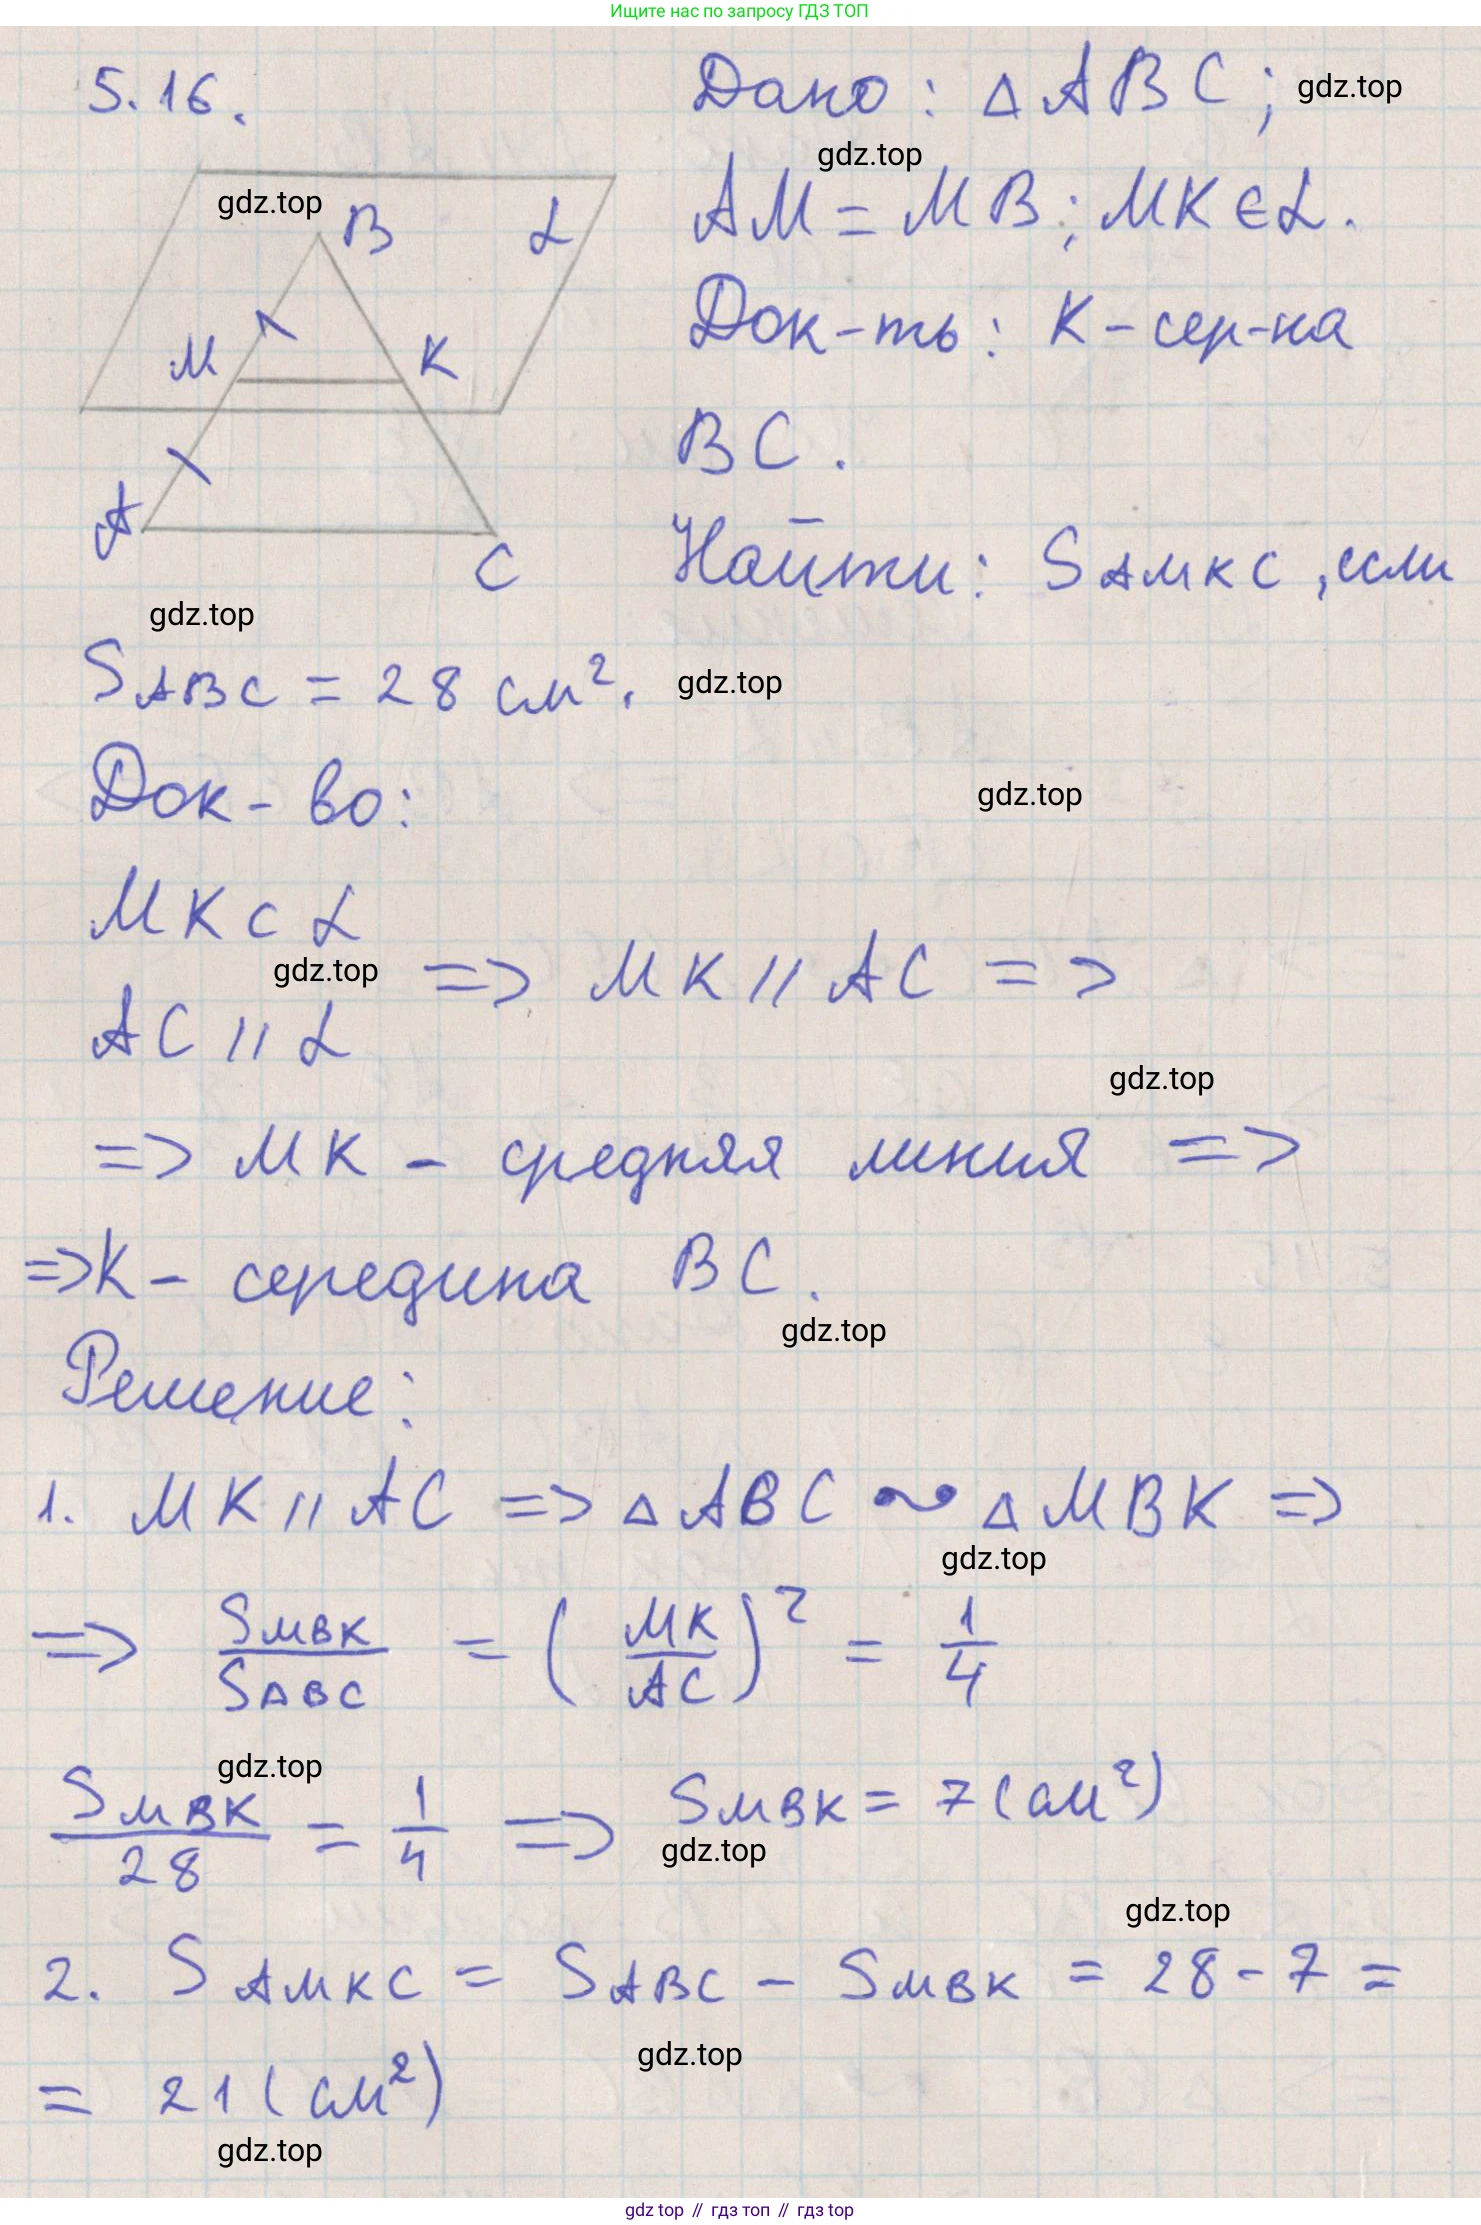 Ищите нас по запросу ГДЗ ТОП
5.16.
Дано: △ABC; gdz.top
gdz.top
AM = MB; MK ∈ α.
gdz.top
B
α
M
K
A
C
Док-ть: K - сер-на
BC.
Найти: S AMKC, если
gdz.top
S ABC = 28 см².
gdz.top
Док-во:
gdz.top
MK ⊂ α
gdz.top
=> MK // AC =>
AC // α
gdz.top
=> MK - средняя линия =>
=> K - середина BC.
gdz.top
Решение:
1. MK // AC => △ABC ~ △MBK =>
gdz.top
=> S MBK / S ABC = (MK / AC)² = 1/4
gdz.top
S MBK / 28 = 1/4 => S MBK = 7 (см²)
gdz.top
gdz.top
2. S AMKC = S ABC - S MBK = 28 - 7 =
gdz.top
= 21 (см²)
gdz.top
gdz top // гдз топ // гдз top